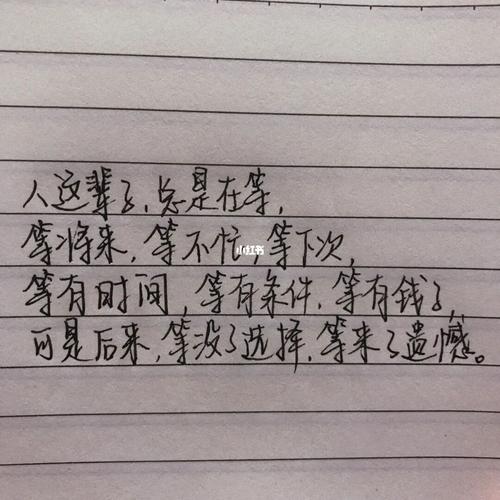 人这辈子,总是在等,
等将来,等不忙,等下次,
等有时间,等有条件,等有钱了,
可是后来,等没了选择,等来了遗憾。
小红书